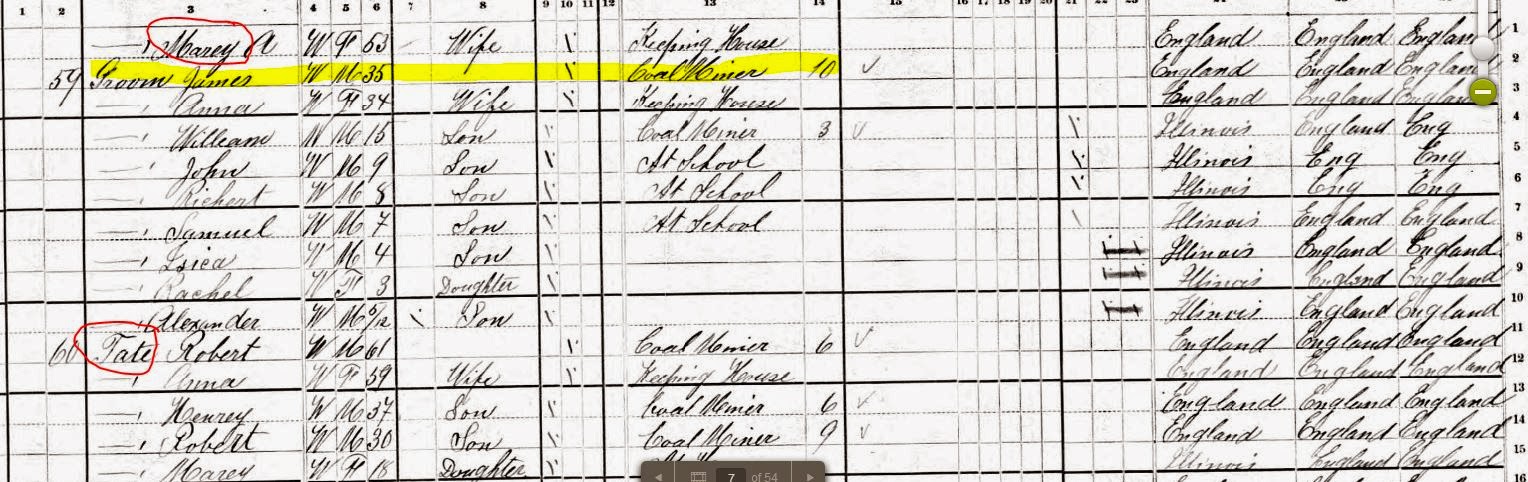 1 2 3 4 5 6 7 8 9 10 11 12 13 14 15 16 17 18 19 20 21 22 23
— Marey A W F 53 Wife 1 Keeping House England England England 1
59 Groom James W M 35 1 Coal Miner 10 ✓ England England England 2
— Anna W F 34 Wife 1 Keeping House England England England 3
— Willeam W M 15 Son 1 Coal Miner 3 ✓ 1 Illinois England Eng 4
— John W M 9 Son 1 At School 1 Illinois Eng Eng 5
— Richert W M 8 Son 1 At School 1 Illinois Eng Eng 6
— Samuel W M 7 Son 1 At School 1 Illinois England England 7
— W M 4 Son Illinois England England 8
— Rachel W F 3 Doughter Illinois England England 9
— Alexander W M 5/12 Son Illinois England England 10
60 Tate Robert W M 61 1 Coal Miner 6 ✓ England England England 11
— Anna W F 59 Wife 1 Keeping House England England England 12
— Henrey W M 37 Son 1 Coal Mener 6 ✓ England England England 13
— Robert W M 30 Son 1 Coal Miner 9 ✓ England England England 14
— Marey W F 18 Doughter Illinois England England 15
16
7 of 54